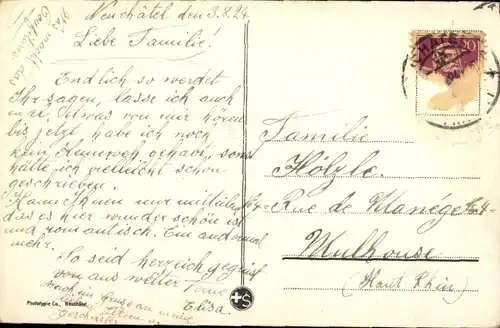 Neuchâtel den 3.8.24.
Liebe Familie!
Endlich so werdet
Ihr sagen, lasse ich auch
etwas von mir hören
bis jetzt habe ich noch
kein Heimweh gehabt, sonst
hätte ich vielleicht schon
geschrieben.
Kann Ihnen nur mitteilen
das es hier wunder schön ist
und romantisch. Ein andermal
mehr.
So seid herzlich gegrüst
von aus weiter
Elisa.
Familie
Hölzle.
Rue de Manége
Mulhouse
(Haut Rhin)
20
Phototypie Co., Neuchâtel
+S